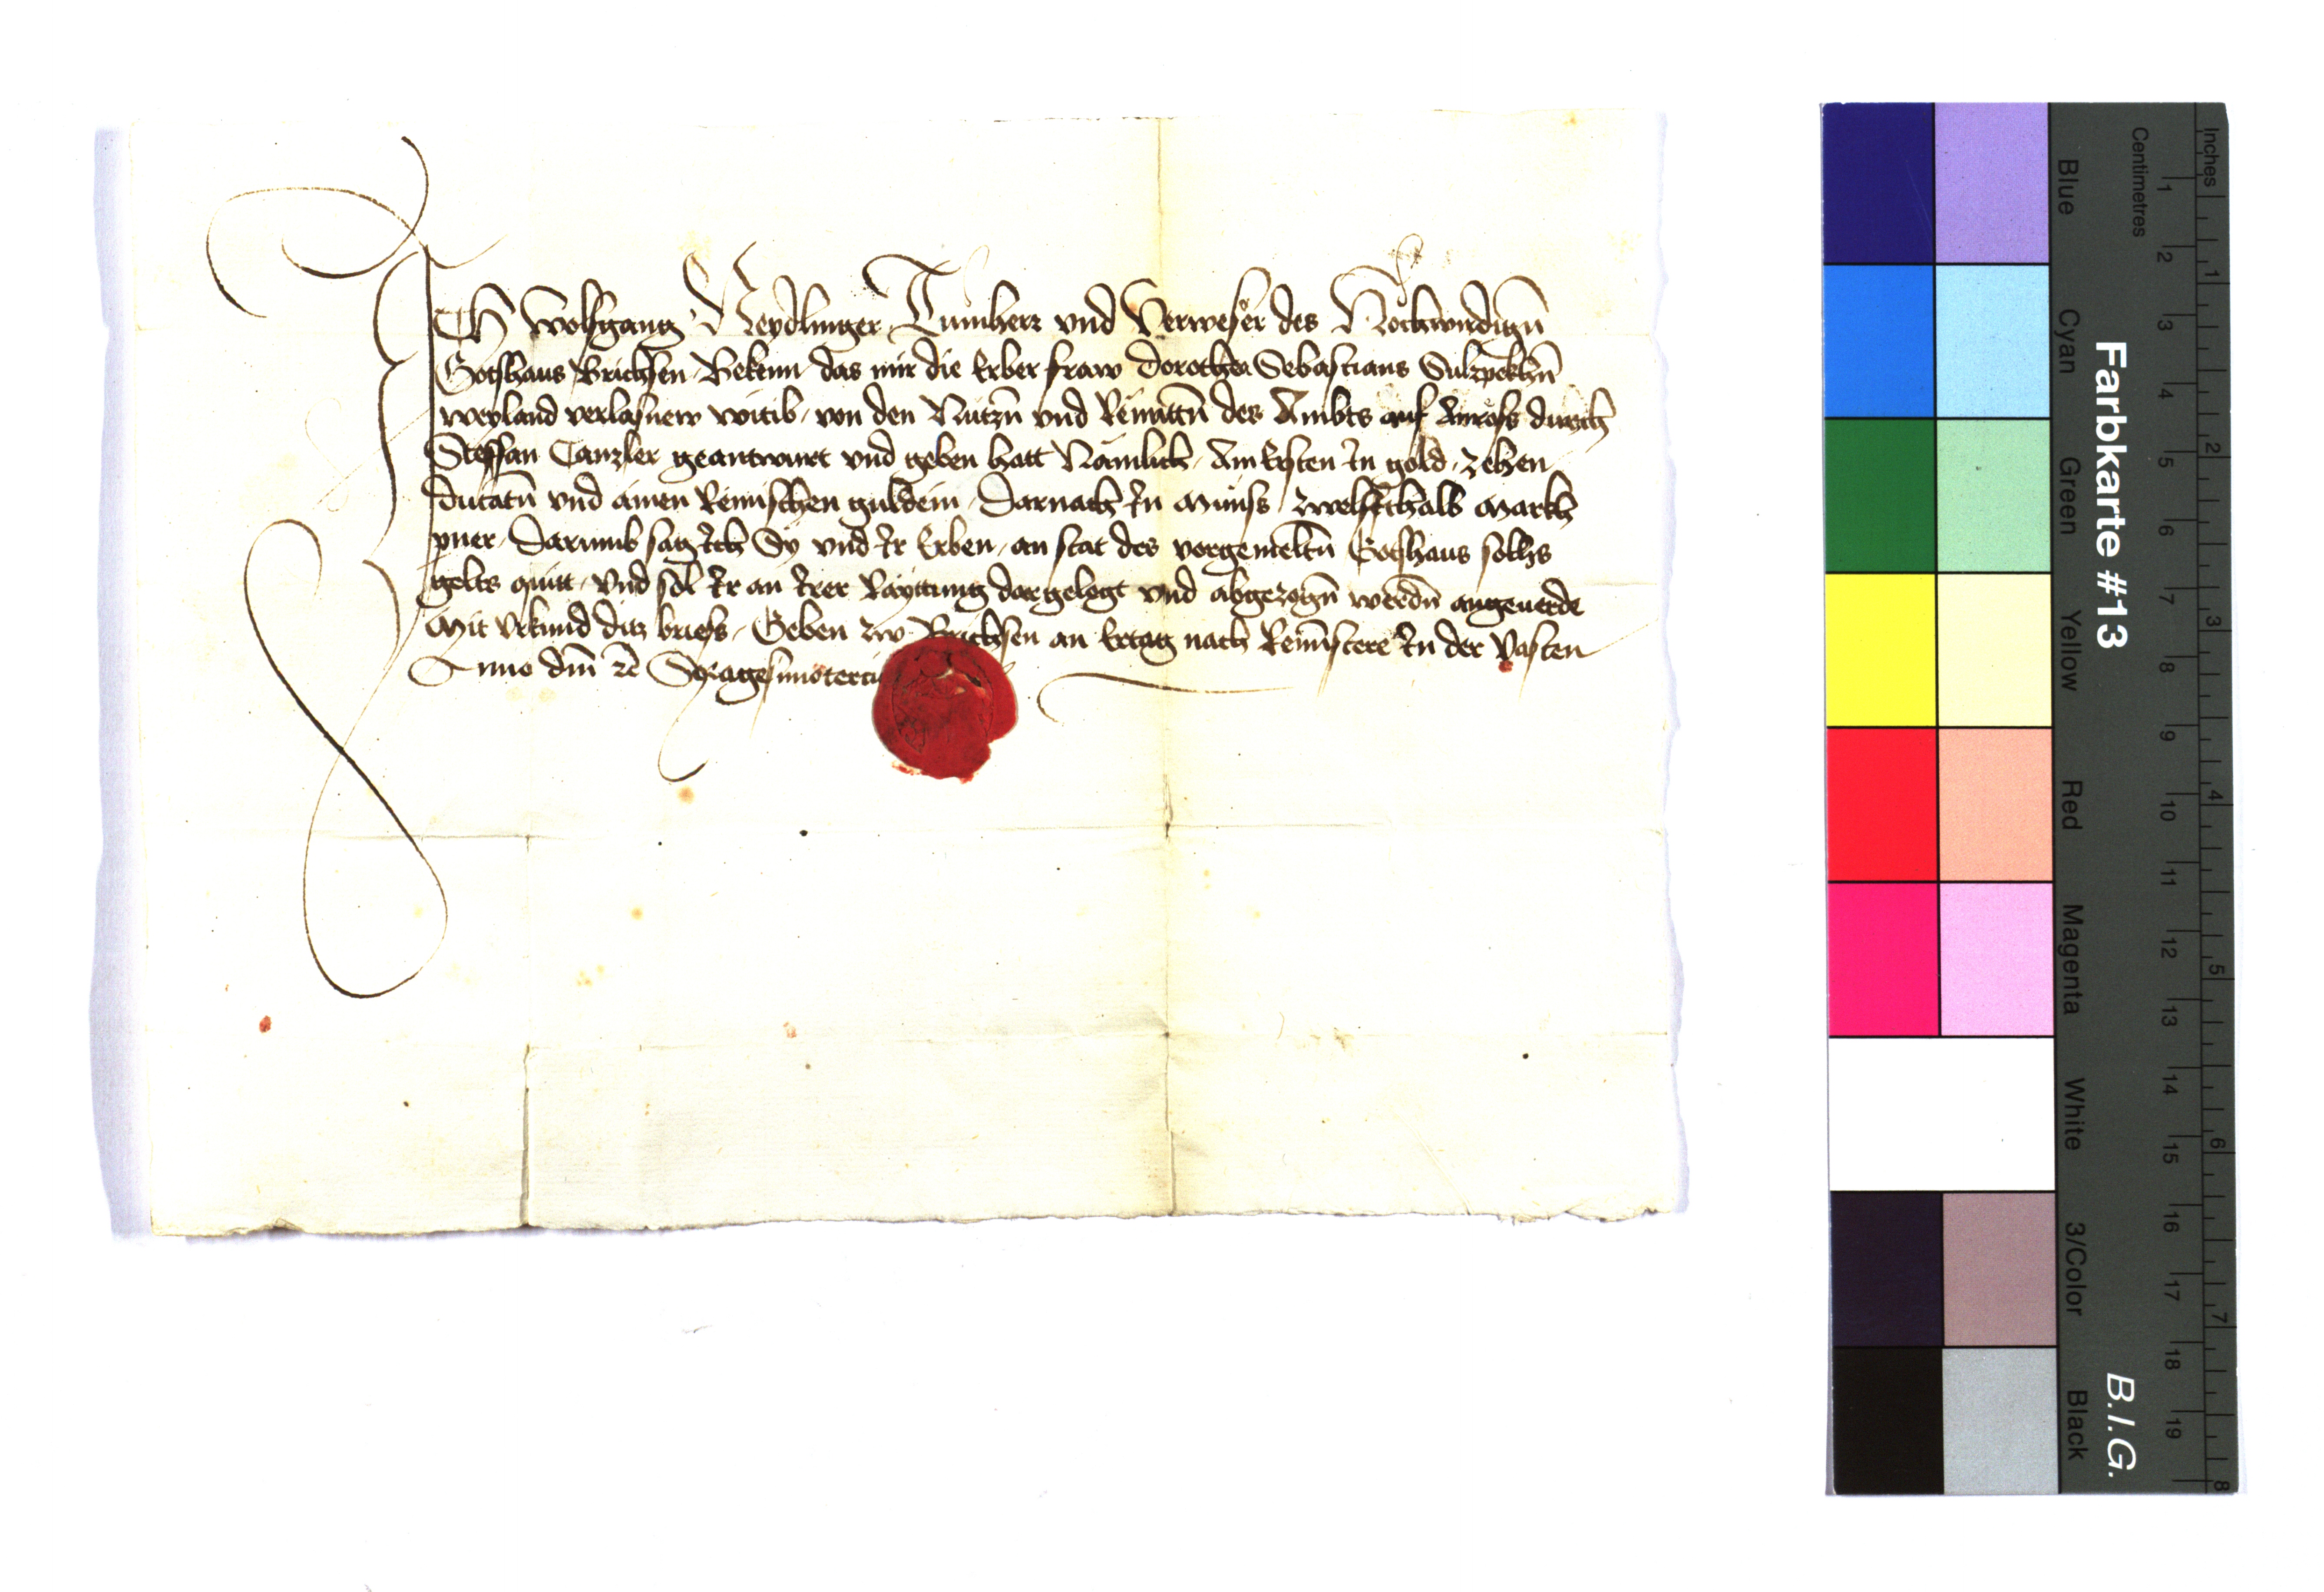 ICH Wolfgang Neydlinger Tumherr vnd Verweser des Hochwirdign̄
Gotshaus Brichsen Bekenn das mir die Erber fraw Dorothea Sebastians Sulzpekhn̄
weyland verlasnew witib von den Nutzn̄ vnd Renntn̄ des Ambts auf Anrass durich
Steffan Canzler geantwurt vnd geben hatt Nämlich Am Ersten In gold zehen
ducatn̄ vnd ainen Reinischen guldein Darnach In Münss zwelffthalb Markh
pner Darumb sag Ich Sy vnd Ir Erben an stat des vorgemeltn̄ Gotshaus solhs
gelts quitt vnd sol Ir an Irer Rayttung dargelegt vnd abgezogn̄ werdn̄ angeuerde
Mit vrkund ditz briefs Geben zw Brichsen an Ertag nach Reminiscere In der Vasten
Anno dm̄ ꝛc̄ Sexagesimotercio
Farbkarte #13
B.I.G.
Inches 1 2 3 4 5 6 7 8
Centimetres 1 2 3 4 5 6 7 8 9 10 11 12 13 14 15 16 17 18 19
Blue Cyan Green Yellow Red Magenta White 3/Color Black